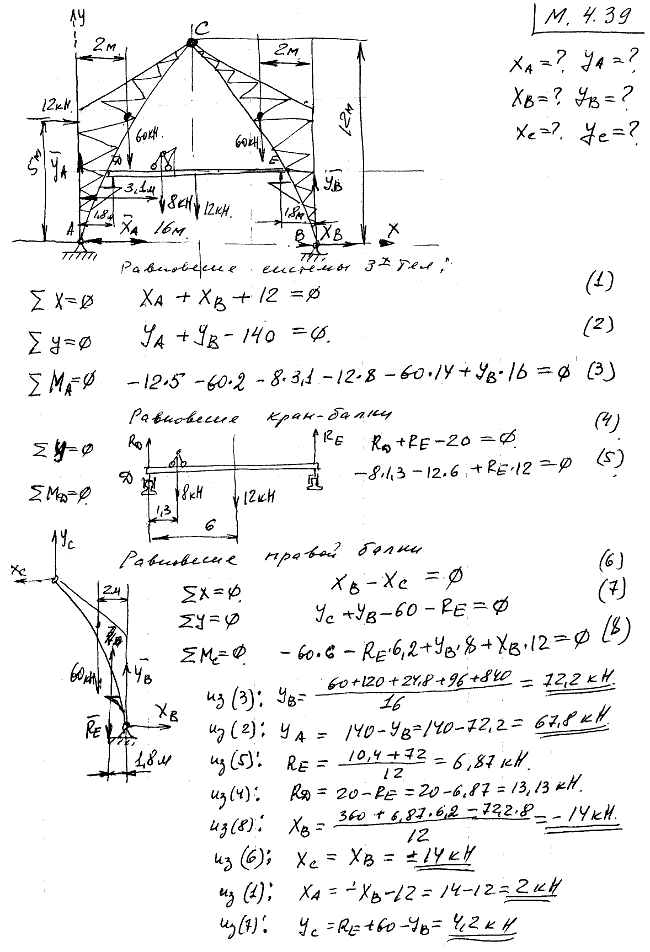 М. 4.39
X_A = ? Y_A = ?
X_B = ? Y_B = ?
X_C = ? Y_C = ?
Y
C
2м
2м
12кН
60кН
60кН
12м
5м
Y_A
D
E
Y_B
3,1м
1,8м
8кН
12кН.
1,8м
A
X_A
16м.
B
X_B
X
Равновесие системы 3х тел:
ΣX=0 X_A + X_B + 12 = 0 (1)
ΣY=0 Y_A + Y_B - 140 = 0. (2)
ΣM_A=0 -12·5 -60·2 -8·3,1 -12·8 -60·14 + Y_B·16 = 0 (3)
Равновесие кран-балки
ΣY=0 R_D + R_E - 20 = 0. (4)
ΣM_D=0 -8·1,3 -12·6 + R_E·12 = 0 (5)
R_D
R_E
D
8кН
12кН
1,3
6
Равновесие правой балки
ΣX=0 X_B - X_C = 0 (6)
ΣY=0 Y_C + Y_B - 60 - R_E = 0 (7)
ΣM_C=0. -60·6 - R_E·6,2 + Y_B·8 + X_B·12 = 0 (8)
Y_C
X_C
2м
60кН
Y_B
R_E
X_B
1,8м
из (3): Y_B = (60+120+24,8+96+840)/16 = 72,2 кН.
из (2): Y_A = 140-Y_B = 140-72,2 = 67,8 кН.
из (5): R_E = (10,4+72)/12 = 6,87 кН.
из (4): R_D = 20-R_E = 20-6,87 = 13,13 кН.
из (8): X_B = (360 + 6,87·6,2 - 72,2·8)/12 = -14 кН.
из (6): X_C = X_B = ±14 кН
из (1): X_A = -X_B-12 = 14-12 = 2 кН
из (7): Y_C = R_E+60-Y_B = 4,2 кН